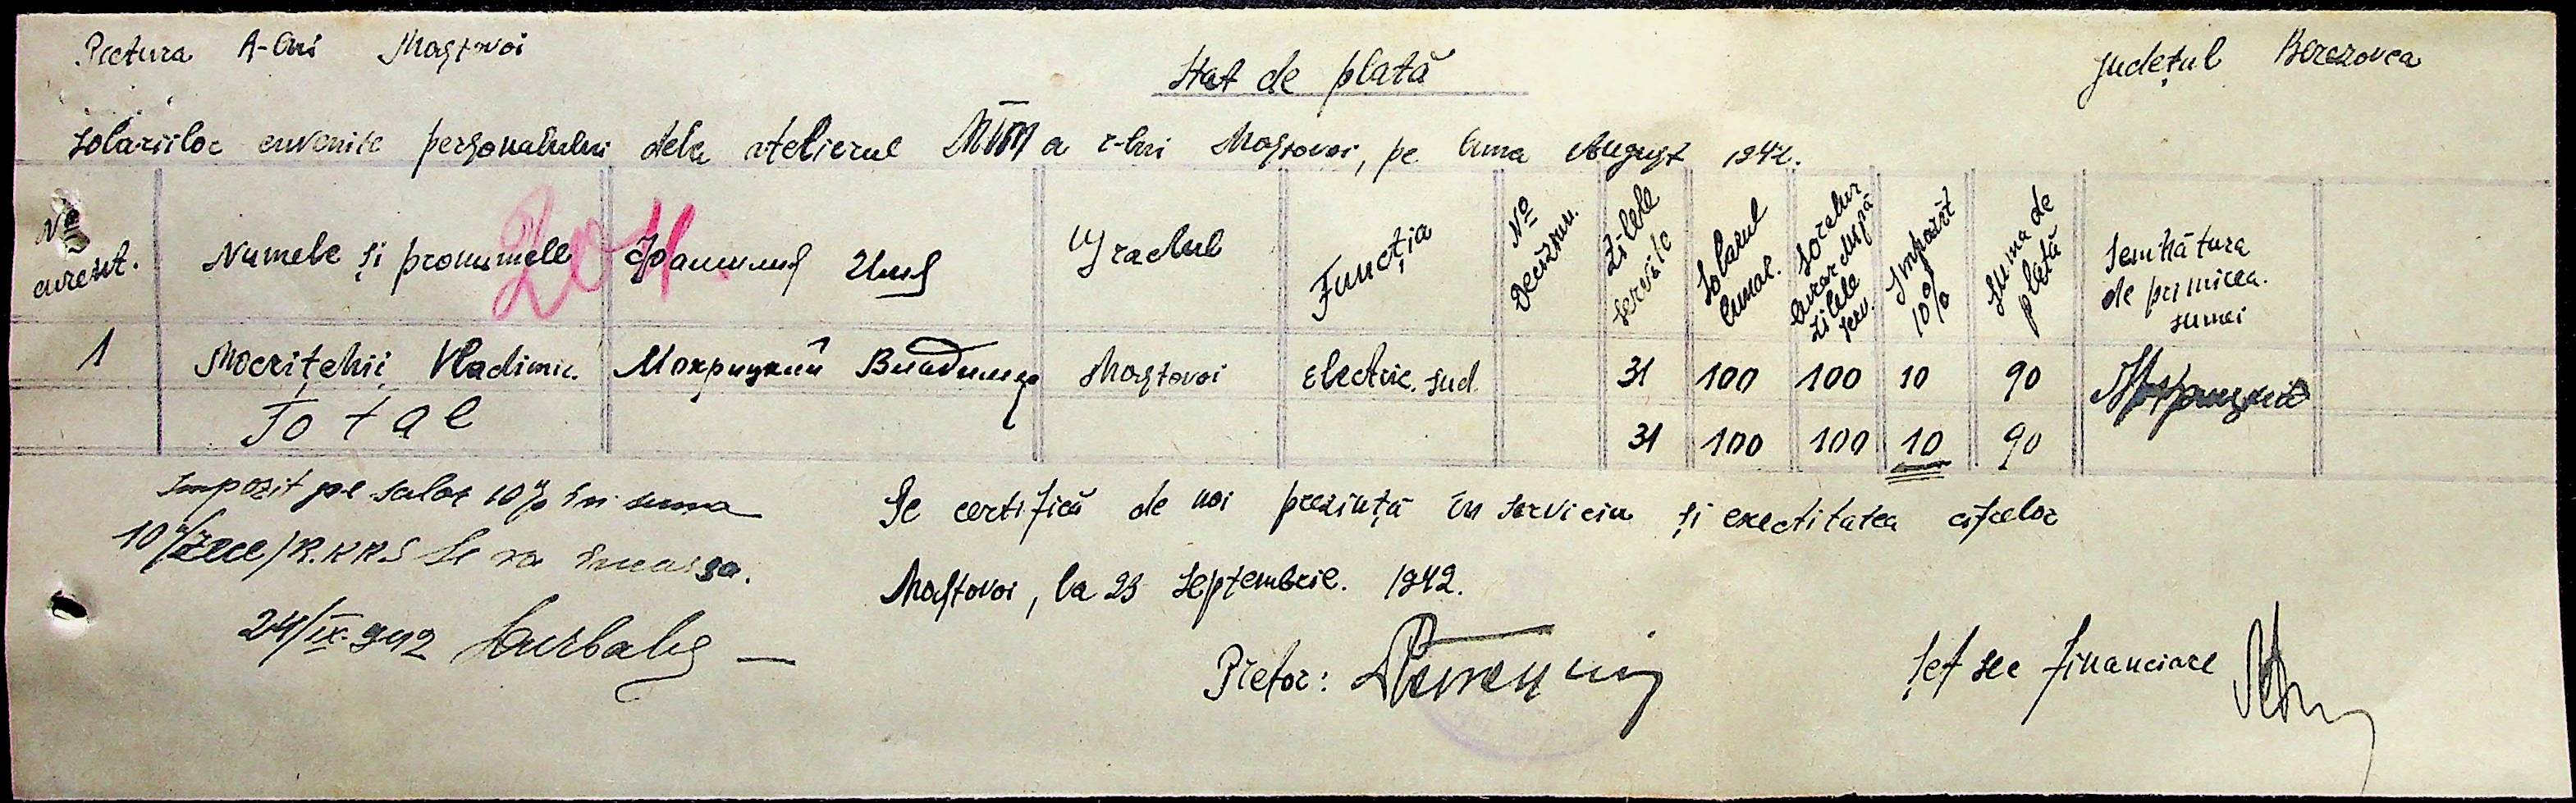 Pretura R-lui Mostovoi
Județul Berezovca
Stat de plată
salariilor cuvenite personalului dela atelierul MTM a r-lui Mostovoi, pe luna August 1942.
№ curent. Numele și pronumele Фамилия Имя Gradul Funcția № Decizun. Zilele servite Salarul lunar. Impozit 10% Suma de plată Semnătura de primirea sumei
204
1 Mocrițchii Vladimir. Мокрицкий Владимир Mostovoi Electric. sud. 31 100 100 10 90 Мокрицкий
Total 31 100 100 10 90
Impozit pe salar 10% în suma
10 /zece/ R.KKS se va încassa.
24/IX.942
Se certifică de noi prezință în serviciu și exectitatea cifrelor
Mostovoi, la 23 Septembrie. 1942.
Pretor:
Șef sec financiare